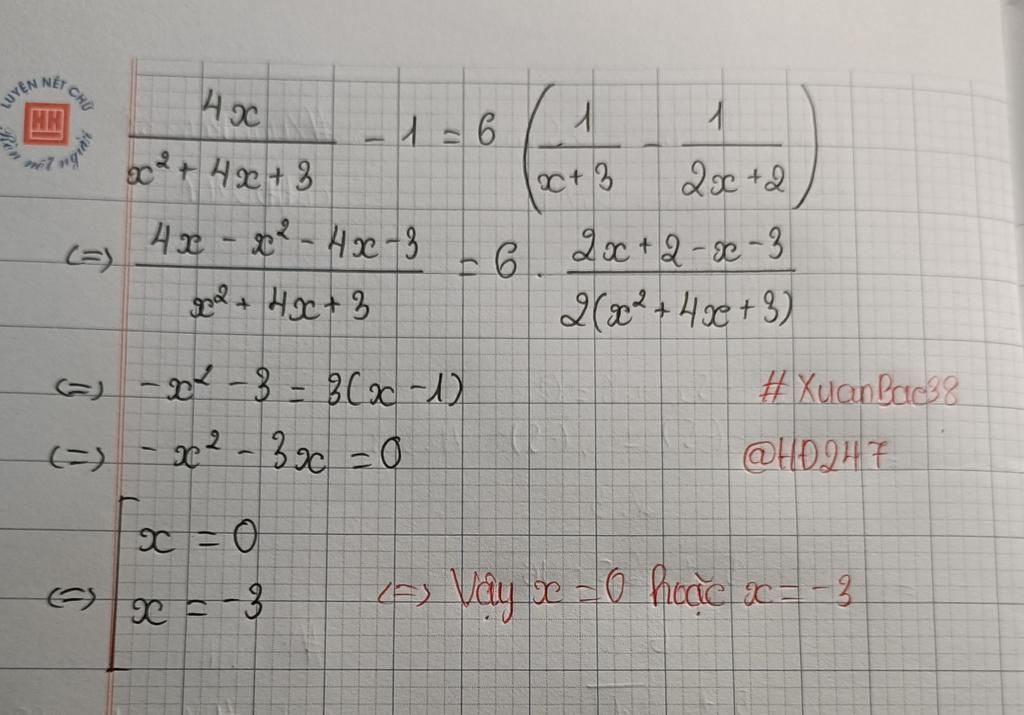 LUYỆN NÉT CHỮ
HH
Rèn nết người
4x/(x² + 4x + 3) - 1 = 6 (1/(x + 3) - 1/(2x + 2))
(=) (4x - x² - 4x - 3)/(x² + 4x + 3) = 6 . (2x + 2 - x - 3)/(2(x² + 4x + 3))
(=) -x² - 3 = 3(x - 1)
#XuanBac38
(=) -x² - 3x = 0
@HD247
x = 0
(=) x = -3 (=) Vậy x = 0 hoặc x = -3